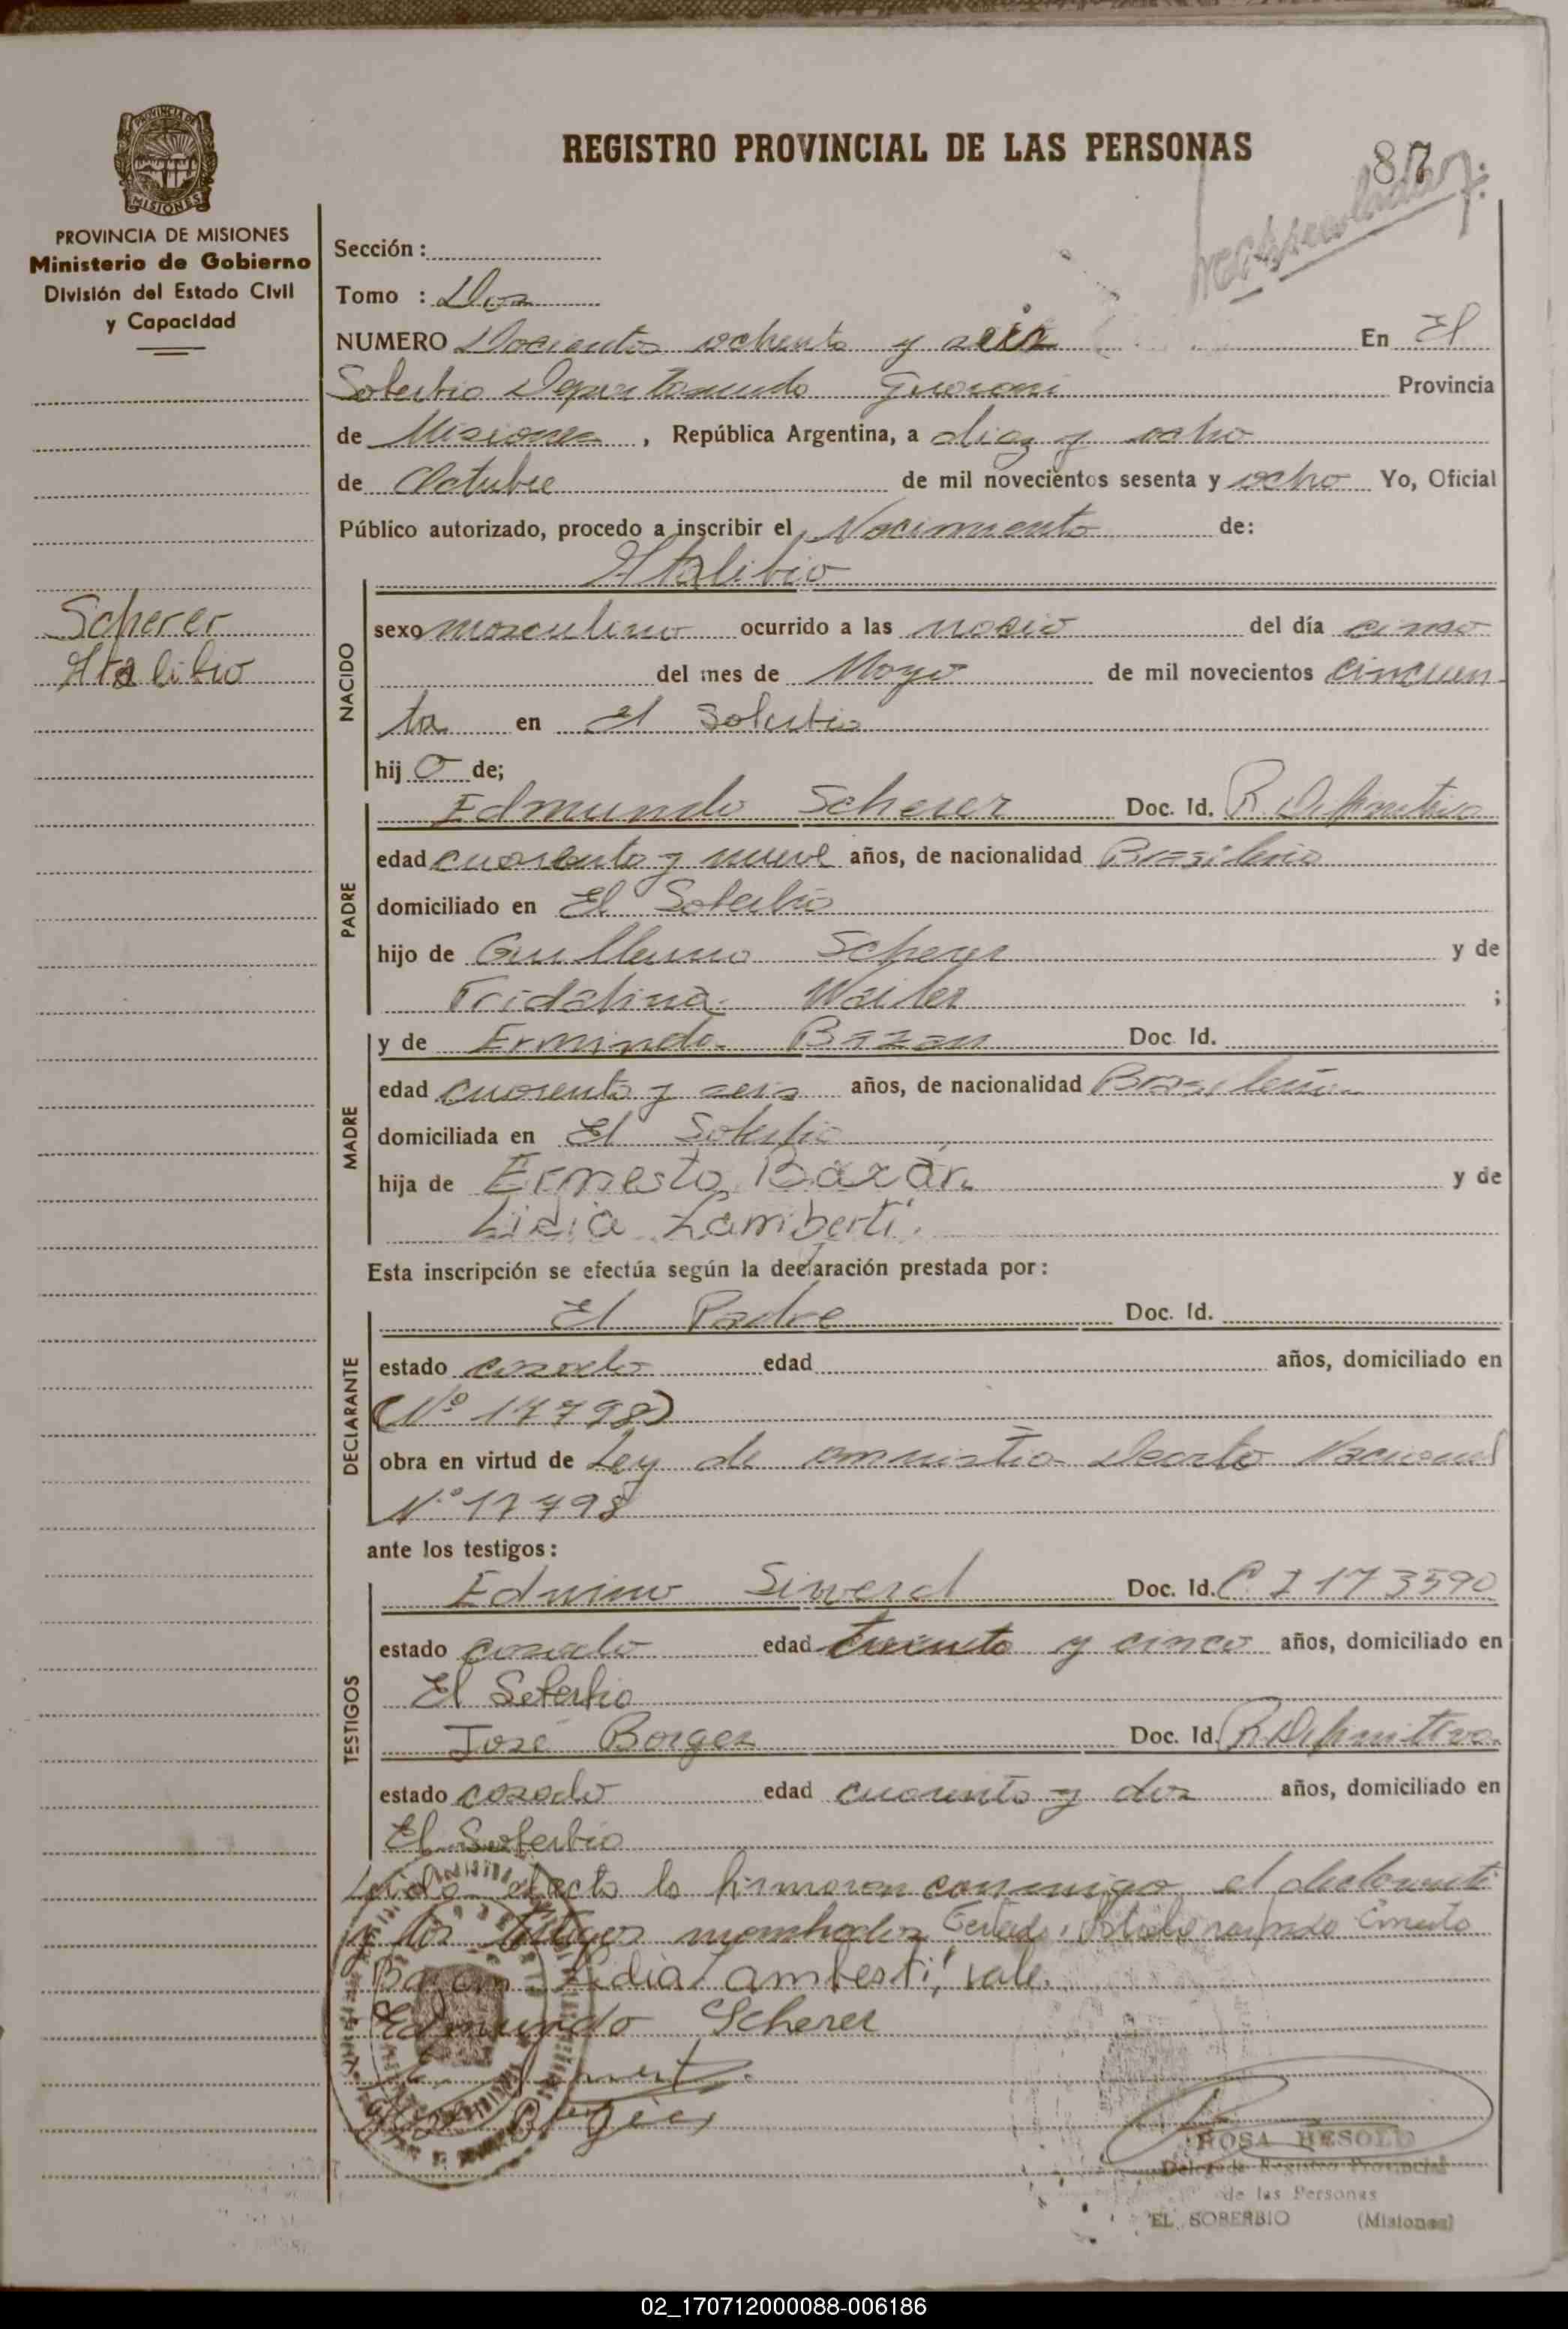 REGISTRO PROVINCIAL DE LAS PERSONAS
87
PROVINCIA DE
MISIONES
PROVINCIA DE MISIONES
Ministerio de Gobierno
División del Estado Civil
y Capacidad
Sección :
Tomo : Dos
NUMERO Docientos ochenta y seis En El
Soberbio Departamento Guarani Provincia
de Misiones , República Argentina, a diez y ocho
de Octubre de mil novecientos sesenta y ocho Yo, Oficial
Público autorizado, procedo a inscribir el Nacimiento de:
Atalibio
Scherer
Atalibio
NACIDO
sexo masculino ocurrido a las nació del día cinco
del mes de Mayo de mil novecientos cincuen-
ta en El Soberbio
hij o de;
PADRE
Edmundo Scherer Doc. Id. R. Definitiva
edad cuarenta y nueve años, de nacionalidad Brasileño
domiciliado en El Soberbio
hijo de Guillermo Scherer y de
Fridalina Wailer ;
MADRE
y de Erminda Bazan Doc. Id.
edad cuarenta y seis años, de nacionalidad Brasileña
domiciliada en El Soberbio
hija de Ernesto Bazán y de
Lidia Lamberti.
Esta inscripción se efectúa según la declaración prestada por:
DECLARANTE
El Padre Doc. Id.
estado casado edad años, domiciliado en
(Nº 17798)
obra en virtud de Ley de amnistia Decreto Nacional
Nº 17798
ante los testigos:
TESTIGOS
Edwino Siwerd Doc. Id. C. I 173590
estado casado edad treinta y cinco años, domiciliado en
El Soberbio
José Borges Doc. Id. R. Definitiva
estado casado edad cuarenta y dos años, domiciliado en
El Soberbio
Leida el acta la firmaron conmigo el declarante
y los testigos nombrados
Bazan Lidia Lamberti, vale.
Edmundo Scherer
ROSA HESOLD
Delegada Registro Provincial
de las Personas
EL SOBERBIO (Misiones)
02_170712000088-006186